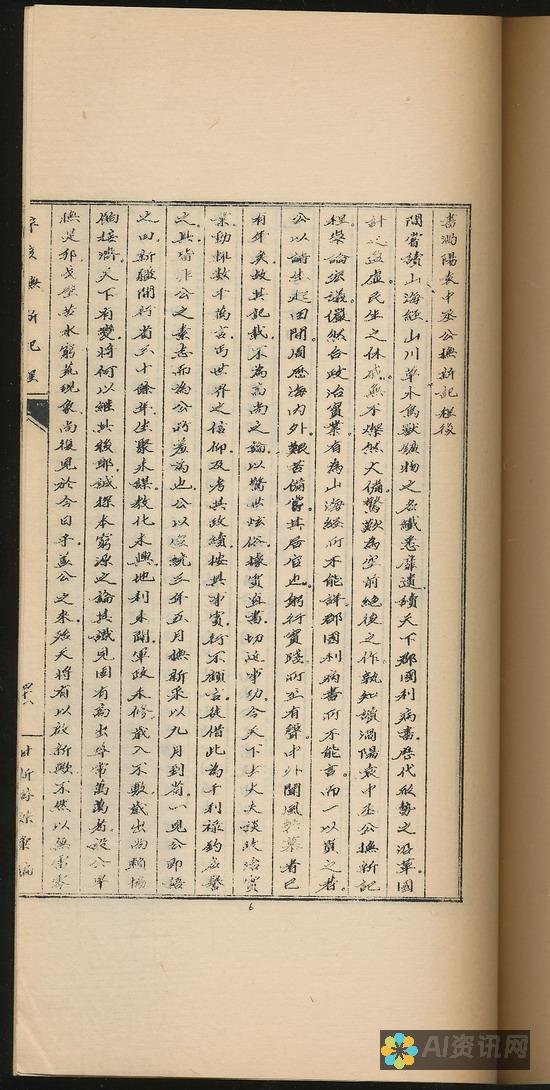 書渦陽袁中丞公撫新記程後
間嘗讀山海經山川草木鳥獸鑛物之名纖悉靡遺讀天下郡國利病書歷代形勢之沿革國
計之盈虛民生之休戚無不燦然大備驚歎為空前絕後之作孰知讀渦陽袁中丞公撫新記
程崇論宏議儼然合政治實業有為山海經所不能詳郡國利病書所不能言而一以貫之者
公以諸生起田間周歷海內外艱苦備嘗其居官也躬行實踐所至有聲中外聞風者已
有年矣故其記載不為高尚之論以驚世炫俗據實直書切近事功今天下士大夫談政治實
業動輒數千萬言為世界之信仰及考其政績按其事實行不顧言徒借此為干利祿釣名譽
之具皆非公之素志而為公所羞為也公以宣統三年五月撫新采以九月到省一見公即語
之曰新疆開行省三十餘年生聚未蕃教化未興地利未闢軍政未修歲入不敷歲出尚賴協
餉接濟天下有變將何以繼其後耶誠探本窮源之論其識見固有高出尋常萬萬者設公早
撫是邦戈壁苦水窮荒現象尚復見於今日乎蓋公之來殆天將有以啟新歟不然以無
辛亥撫新記程
四六
6
AI资讯网